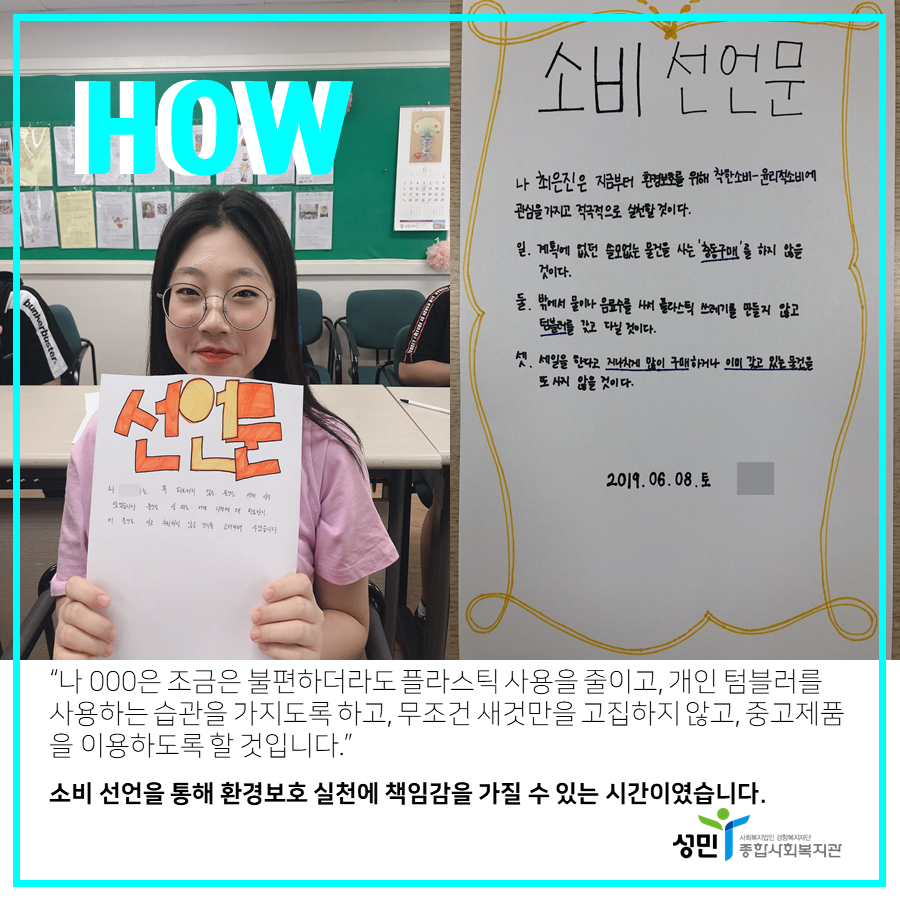 HOW
6
bunkerbuster
선언문
소비 선언문
나 최은진은 지금부터 환경보호를 위해 착한소비-윤리적소비에
관심을 가지고 적극적으로 실천할 것이다.
일. 계획에 없던 쓸모없는 물건을 사는 '충동구매'를 하지 않을
것이다.
둘. 밖에서 물이나 음료수를 사서 플라스틱 쓰레기를 만들지 않고
텀블러를 갖고 다닐 것이다.
셋. 세일을 한다고 지나치게 많이 구매하거나 이미 갖고 있는 물건을
또 사지 않을 것이다.
2019.06.08.토
“나 000은 조금은 불편하더라도 플라스틱 사용을 줄이고, 개인 텀블러를
사용하는 습관을 가지도록 하고, 무조건 새것만을 고집하지 않고, 중고제품
을 이용하도록 할 것입니다.”
소비 선언을 통해 환경보호 실천에 책임감을 가질 수 있는 시간이였습니다.
성민
사회복지법인 경험복지재단
종합사회복지관